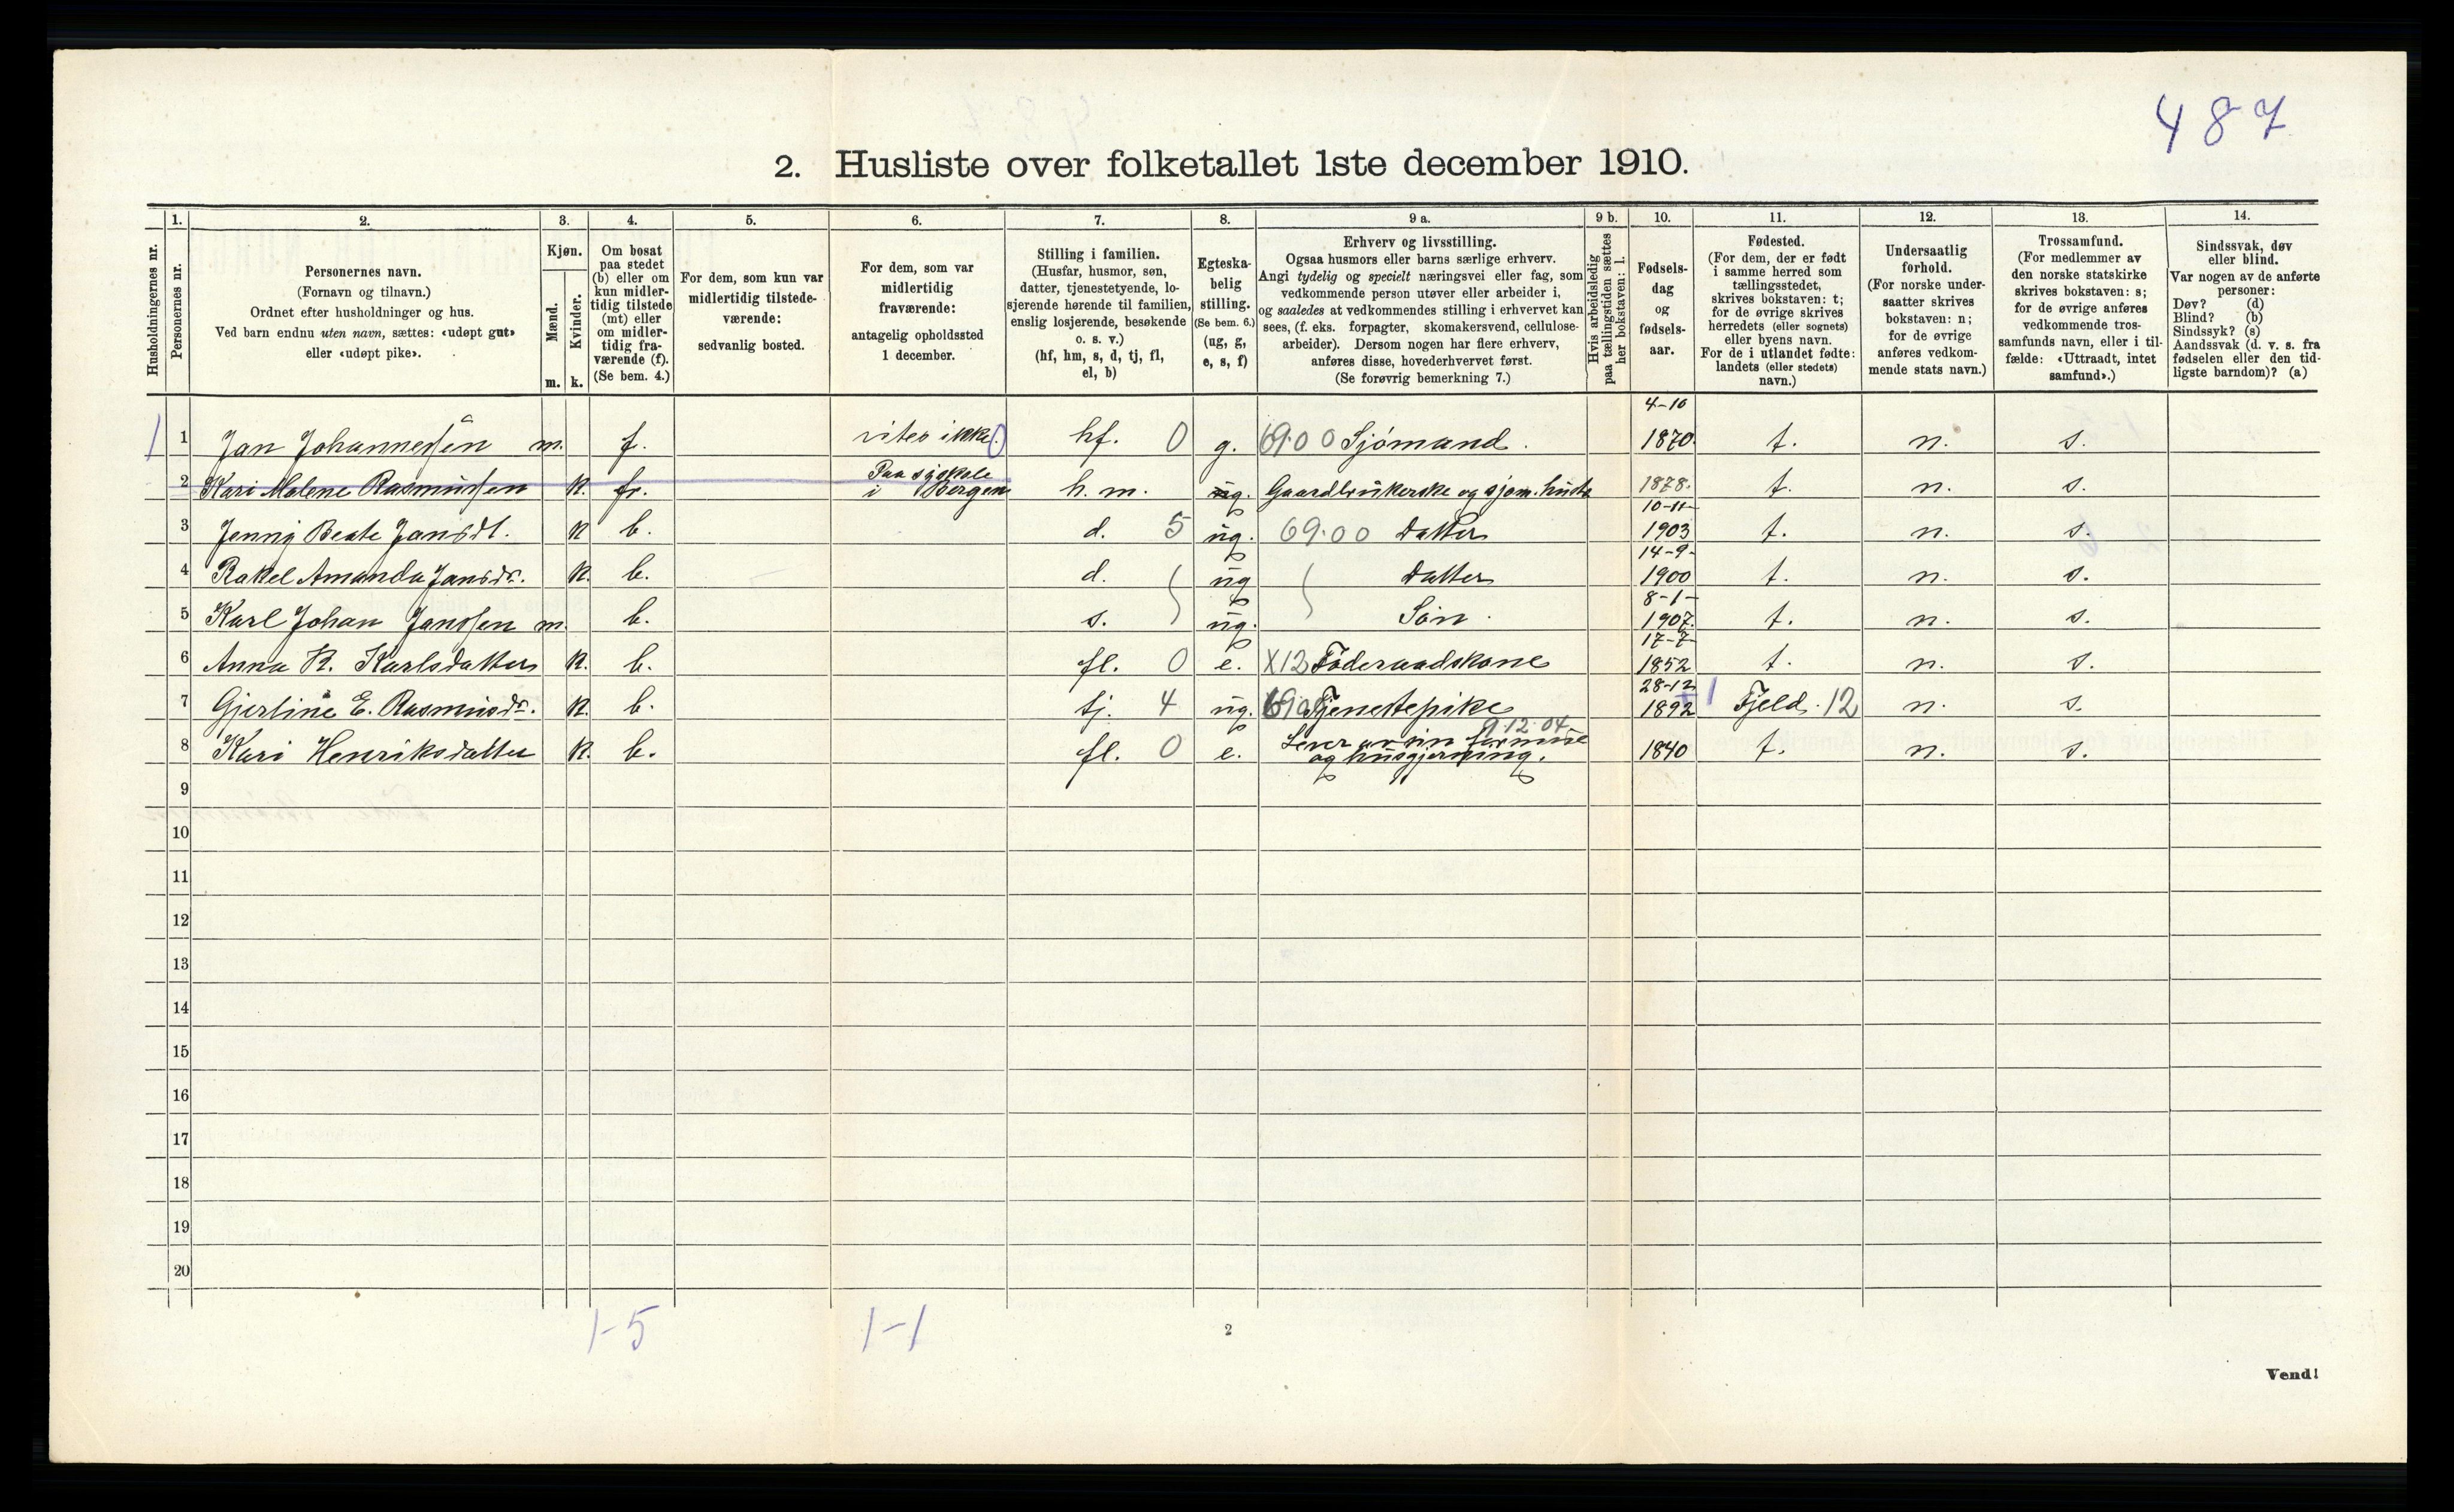 487
2. Husliste over folketallet 1ste december 1910.
Husholdningernes nr.
1. Personernes nr.
2. Personernes navn.
(Fornavn og tilnavn.)
Ordnet efter husholdninger og hus.
Ved barn endnu uten navn, sættes: «udøpt gut»
eller «udøpt pike».
3. Kjøn.
Mænd. m.
Kvinder. k.
4. Om bosat
paa stedet
(b) eller om
kun midler-
tidig tilstede
(mt) eller
om midler-
tidig fra-
værende (f).
(Se bem. 4.)
5. For dem, som kun var
midlertidig tilstede-
værende:
sedvanlig bosted.
6. For dem, som var
midlertidig
fraværende:
antagelig opholdssted
1 december.
7. Stilling i familien.
(Husfar, husmor, søn,
datter, tjenestetyende, lo-
sjerende hørende til familien,
enslig losjerende, besøkende
o. s. v.)
(hf, hm, s, d, tj, fl,
el, b)
8. Egteska-
belig
stilling.
(Se bem. 6.)
(ug, g,
e, s, f)
9 a. Erhverv og livsstilling.
Ogsaa husmors eller barns særlige erhverv.
Angi tydelig og specielt næringsvei eller fag, som
vedkommende person utøver eller arbeider i,
og saaledes at vedkommendes stilling i erhvervet kan
sees, (f. eks. forpagter, skomakersvend, cellulose-
arbeider). Dersom nogen har flere erhverv,
anføres disse, hovederhvervet først.
(Se forøvrig bemerkning 7.)
9 b. Hvis arbeidsledig
paa tællingstiden sættes
her bokstaven: l.
10. Fødsels-
dag
og
fødsels-
aar.
11. Fødested.
(For dem, der er født
i samme herred som
tællingsstedet,
skrives bokstaven: t;
for de øvrige skrives
herredets (eller sognets)
eller byens navn.
For de i utlandet fødte:
landets (eller stedets)
navn.)
12. Undersaatlig
forhold.
(For norske under-
saatter skrives
bokstaven: n;
for de øvrige
anføres vedkom-
mende stats navn.)
13. Trossamfund.
(For medlemmer av
den norske statskirke
skrives bokstaven: s;
for de øvrige anføres
vedkommende tros-
samfunds navn, eller i til-
fælde: «Uttraadt, intet
samfund».)
14. Sindssvak, døv
eller blind.
Var nogen av de anførte
personer:
Døv? (d)
Blind? (b)
Sindssyk? (s)
Aandssvak (d. v. s. fra
fødselen eller den tid-
ligste barndom)? (a)
1 1 Jan Johannessen m. f. vites ikke. 0 hf. 0 g. 69.00 Sjómand. 4-10 1870. t. n. s.
2 Kari Malene Rasmussen k. fr. Paa sygkele i Bergen h. m. g. Gaardbrukerske og sjom. hustr 1878. t. n. s.
3 Jenny Beate Jansdt. k b. d. 5 ug. 69.00 Datter 10-11- 1903 t. n. s.
4 Rakel Amanda Jansdr. k. b. d. ug Datter 14-9- 1900 t. n. s.
5 Karl Johan Janssen m. b. s. ug. Sön. 8-1- 1907. t. n. s.
6 Anna K. Karlsdatter k. b. fl. 0 e. X12 Föderaadskone 17-7- 1852 t. n. s.
7 Gjertine E. Rasmusdr. k. b. tj. 4 ug. Tjenestepike 28-12 1892 1 Fjeld. 12 n. s.
8 Kari Henriksdatter k. b. fl. 0 e. 9.12.04 Lever av sin formue og husgjerning. 1840 t. n. s.
9
10
11
12
13
14
15
16
17
18
19
20
1-5 1-1
2
Vend!